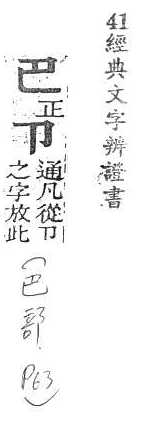 41經典文字辨證書
卪正卩通凡從卩
之字放此
(卪部 P63)